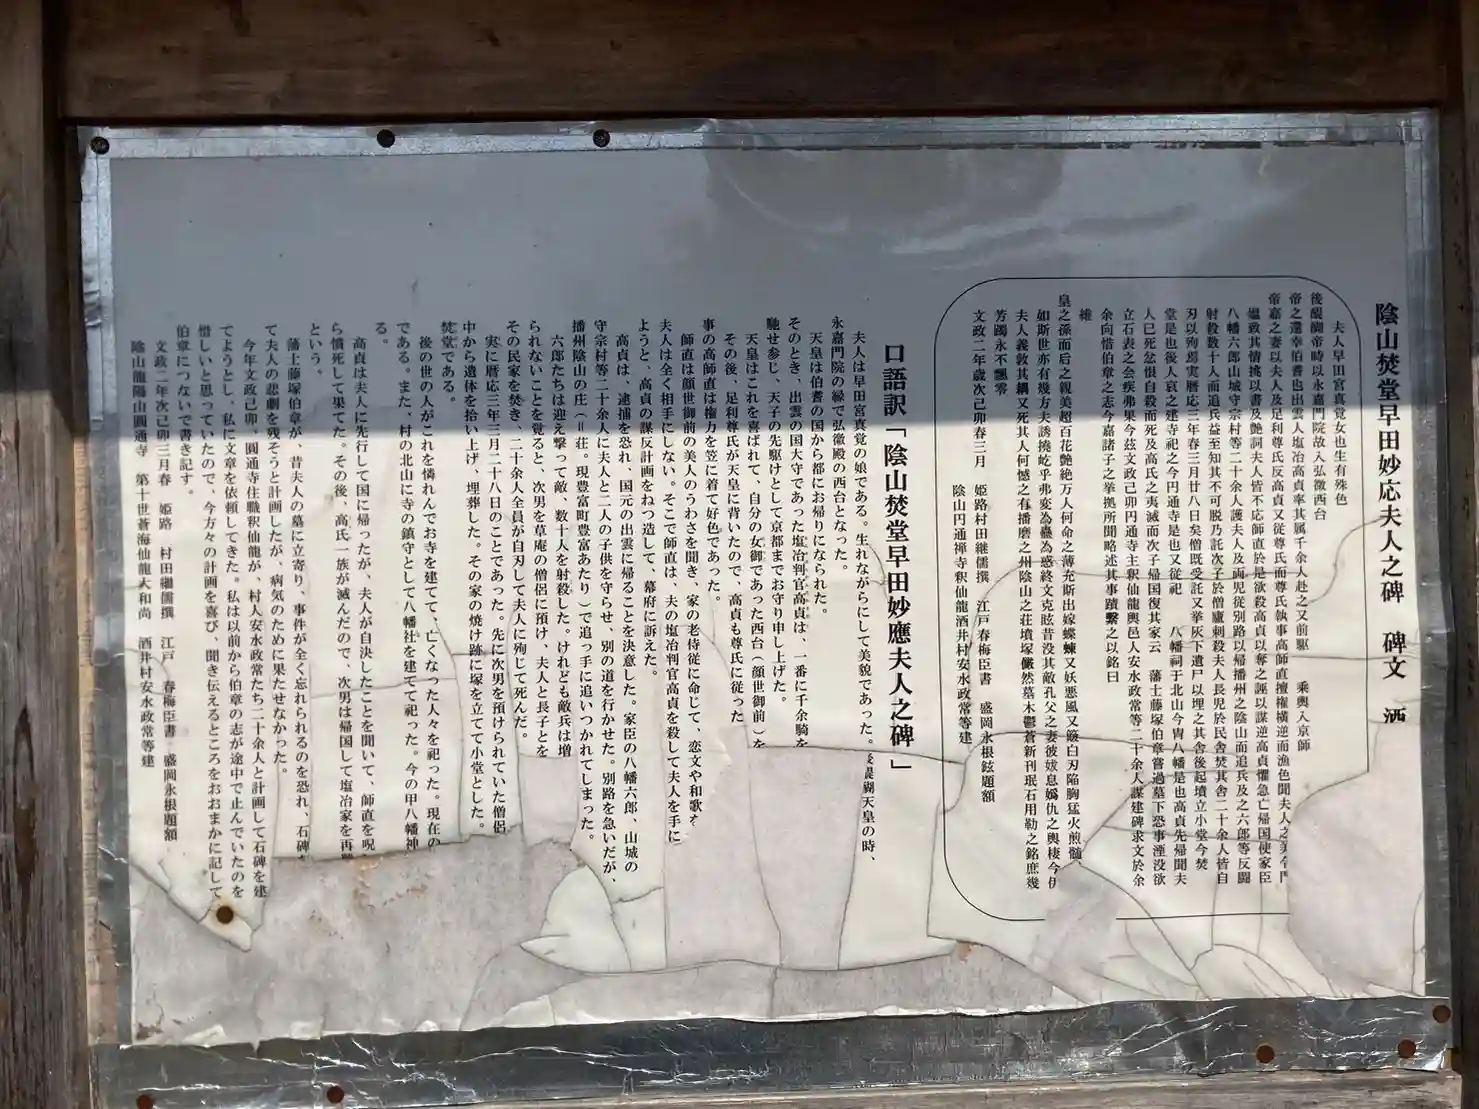 陰山焚堂早田妙応夫人之碑　碑文　酒
夫人早田宮真覚女也生有殊色
後醍醐帝時以永嘉門院故入弘徽西台
帝之還幸伯耆也出雲人塩冶高貞率其属千余人赴之又前駆　乗輿入京師
帝嘉之妻以夫人及足利尊氏反高貞又従尊氏而尊氏執事高師直擅権横逆而漁色聞夫人之美令門
媼致其情挑以書及艶詞夫人皆不応師直於是欲殺高貞以奪之誣以謀逆高貞懼急亡帰国使家臣
八幡六郎山城守宗村等二十余人護夫人及両児従別路以帰播州之陰山而追兵及之六郎等反闘
射殺数十人而追兵益至知其不可脱乃託次子於僧廬刺殺夫人長児於民舎焚其舎二十余人皆自
刃以殉焉実暦応三年春三月廿八日矣僧既受託又挙灰下遺尸以埋之其舎後起墳立小堂今焚
堂是也後人哀之建寺祀之今円通寺是也又従祀　八幡祠于北山今冑八幡是也高貞先帰聞夫
人已死忿恨自殺而死及高氏之夷滅而次子帰国復其家云　藩士藤塚伯章嘗過墓下恐事湮没欲
立石表之会疾弗果今玆文政己卯円通寺主釈仙龍與邑人安水政常等二十余人謀建碑求文於余
余向惜伯章之志今嘉諸子之挙拠所聞略述其事蹟繫之以銘曰
維
皇之孫而后之親美超百花艶絶万人何命之薄充斯出嫁蝶蜨又妖悪風又簸白刃陥胸猛火煎髄
如斯世亦有幾丈夫誘撓屹乎弗変為蠱為惑終文克眩昔没其敵孔父之妻彼妭息嬀仇之與棲今
夫人義敦其綱又死其人何憾之有播磨之州陰山之荘墳塚儼然墓木鬱蒼新刊珉石用勒之銘庶幾
芳躅永不飄零
文政二年歳次己卯春三月　姫路村田継儒撰　江戸春梅臣書　盛岡永根鉉題額
陰山円通禅寺釈仙龍酒井村安水政常等建
口語訳「陰山焚堂早田妙應夫人之碑」
夫人は早田宮真覚の娘である。生れながらにして美貌であった。後醍醐天皇の時、
永嘉門院の縁で弘徽殿の西台となった。
天皇は伯耆の国から都にお帰りになられた。
そのとき、出雲の国大守であった塩冶判官高貞は、一番に千余騎を
馳せ参じ、天子の先駆けとして京都までお守り申し上げた。
天皇はこれを喜ばれて、自分の女御であった西台（顔世御前）を
その後、足利尊氏が天皇に背いたので、高貞も尊氏に従った
事の高師直は権力を笠に着て好色であった。
師直は顔世御前の美人のうわさを聞き、家の老侍従に命じて、恋文や和歌を
夫人は全く相手にしない。そこで師直は、夫の塩冶判官高貞を殺して夫人を手に
ようと、高貞の謀反計画をねつ造して、幕府に訴えた。
高貞は、逮捕を恐れ、国元の出雲に帰ることを決意した。家臣の八幡六郎、山城の
守宗村等二十余人に夫人と二人の子供を守らせ、別の道を行かせた。別路を急いだが、
播州陰山の庄（＝荘。現豊富町豊富あたり）で追っ手に追いつかれてしまった。
六郎たちは迎え撃って敵、数十人を射殺した。けれども敵兵は増
られないことを覚ると、次男を草庵の僧侶に預け、夫人と長子とを
その民家を焚き、二十余人全員が自刃して夫人に殉じて死んだ。
実に暦応三年三月二十八日のことであった。先に次男を預けられていた僧侶
中から遺体を拾い上げ、埋葬した。その家の焼け跡に塚を立てて小堂とした。
焚堂である。
後の世の人がこれを憐れんでお寺を建てて、亡くなった人々を祀った。現在の
である。また、村の北山に寺の鎮守として八幡社を建てて祀った。今の甲八幡神
る。
高貞は夫人に先行して国に帰ったが、夫人が自決したことを聞いて、師直を呪
ら憤死して果てた。その後、高氏一族が滅んだので、次男は帰国して塩冶家を再
という。
藩士藤塚伯章が、昔夫人の墓に立寄り、事件が全く忘れられるのを恐れ、石碑を
て夫人の悲劇を残そうと計画したが、病気のために果たせなかった。
今年文政己卯。圓通寺住職釈仙龍が、村人安水政常たち二十余人と計画して石碑を建
てようとし、私に文章を依頼してきた。私は以前から伯章の志が途中で止んでいたのを
惜しいと思っていたので、今方々の計画を喜び、聞き伝えるところをおおまかに記して
伯章につないで書き記す。
文政二年次己卯三月春　姫路　村田継儒撰　江戸　春梅臣書　盛岡永根題額
陰山龍陽山圓通寺　第十世蒼海仙龍大和尚　酒井村安水政常等建